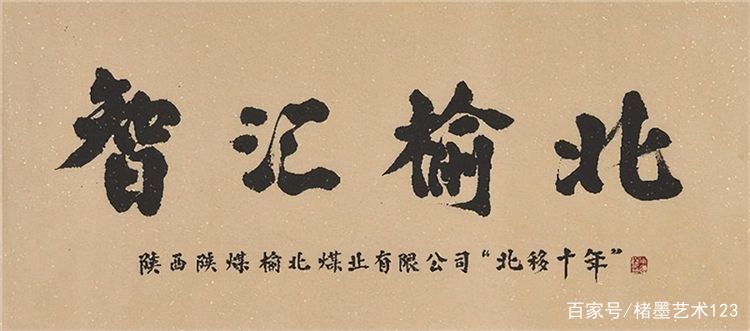 智汇榆北
陕西陕煤榆北煤业有限公司“北移十年”
百家号/楮墨艺术123